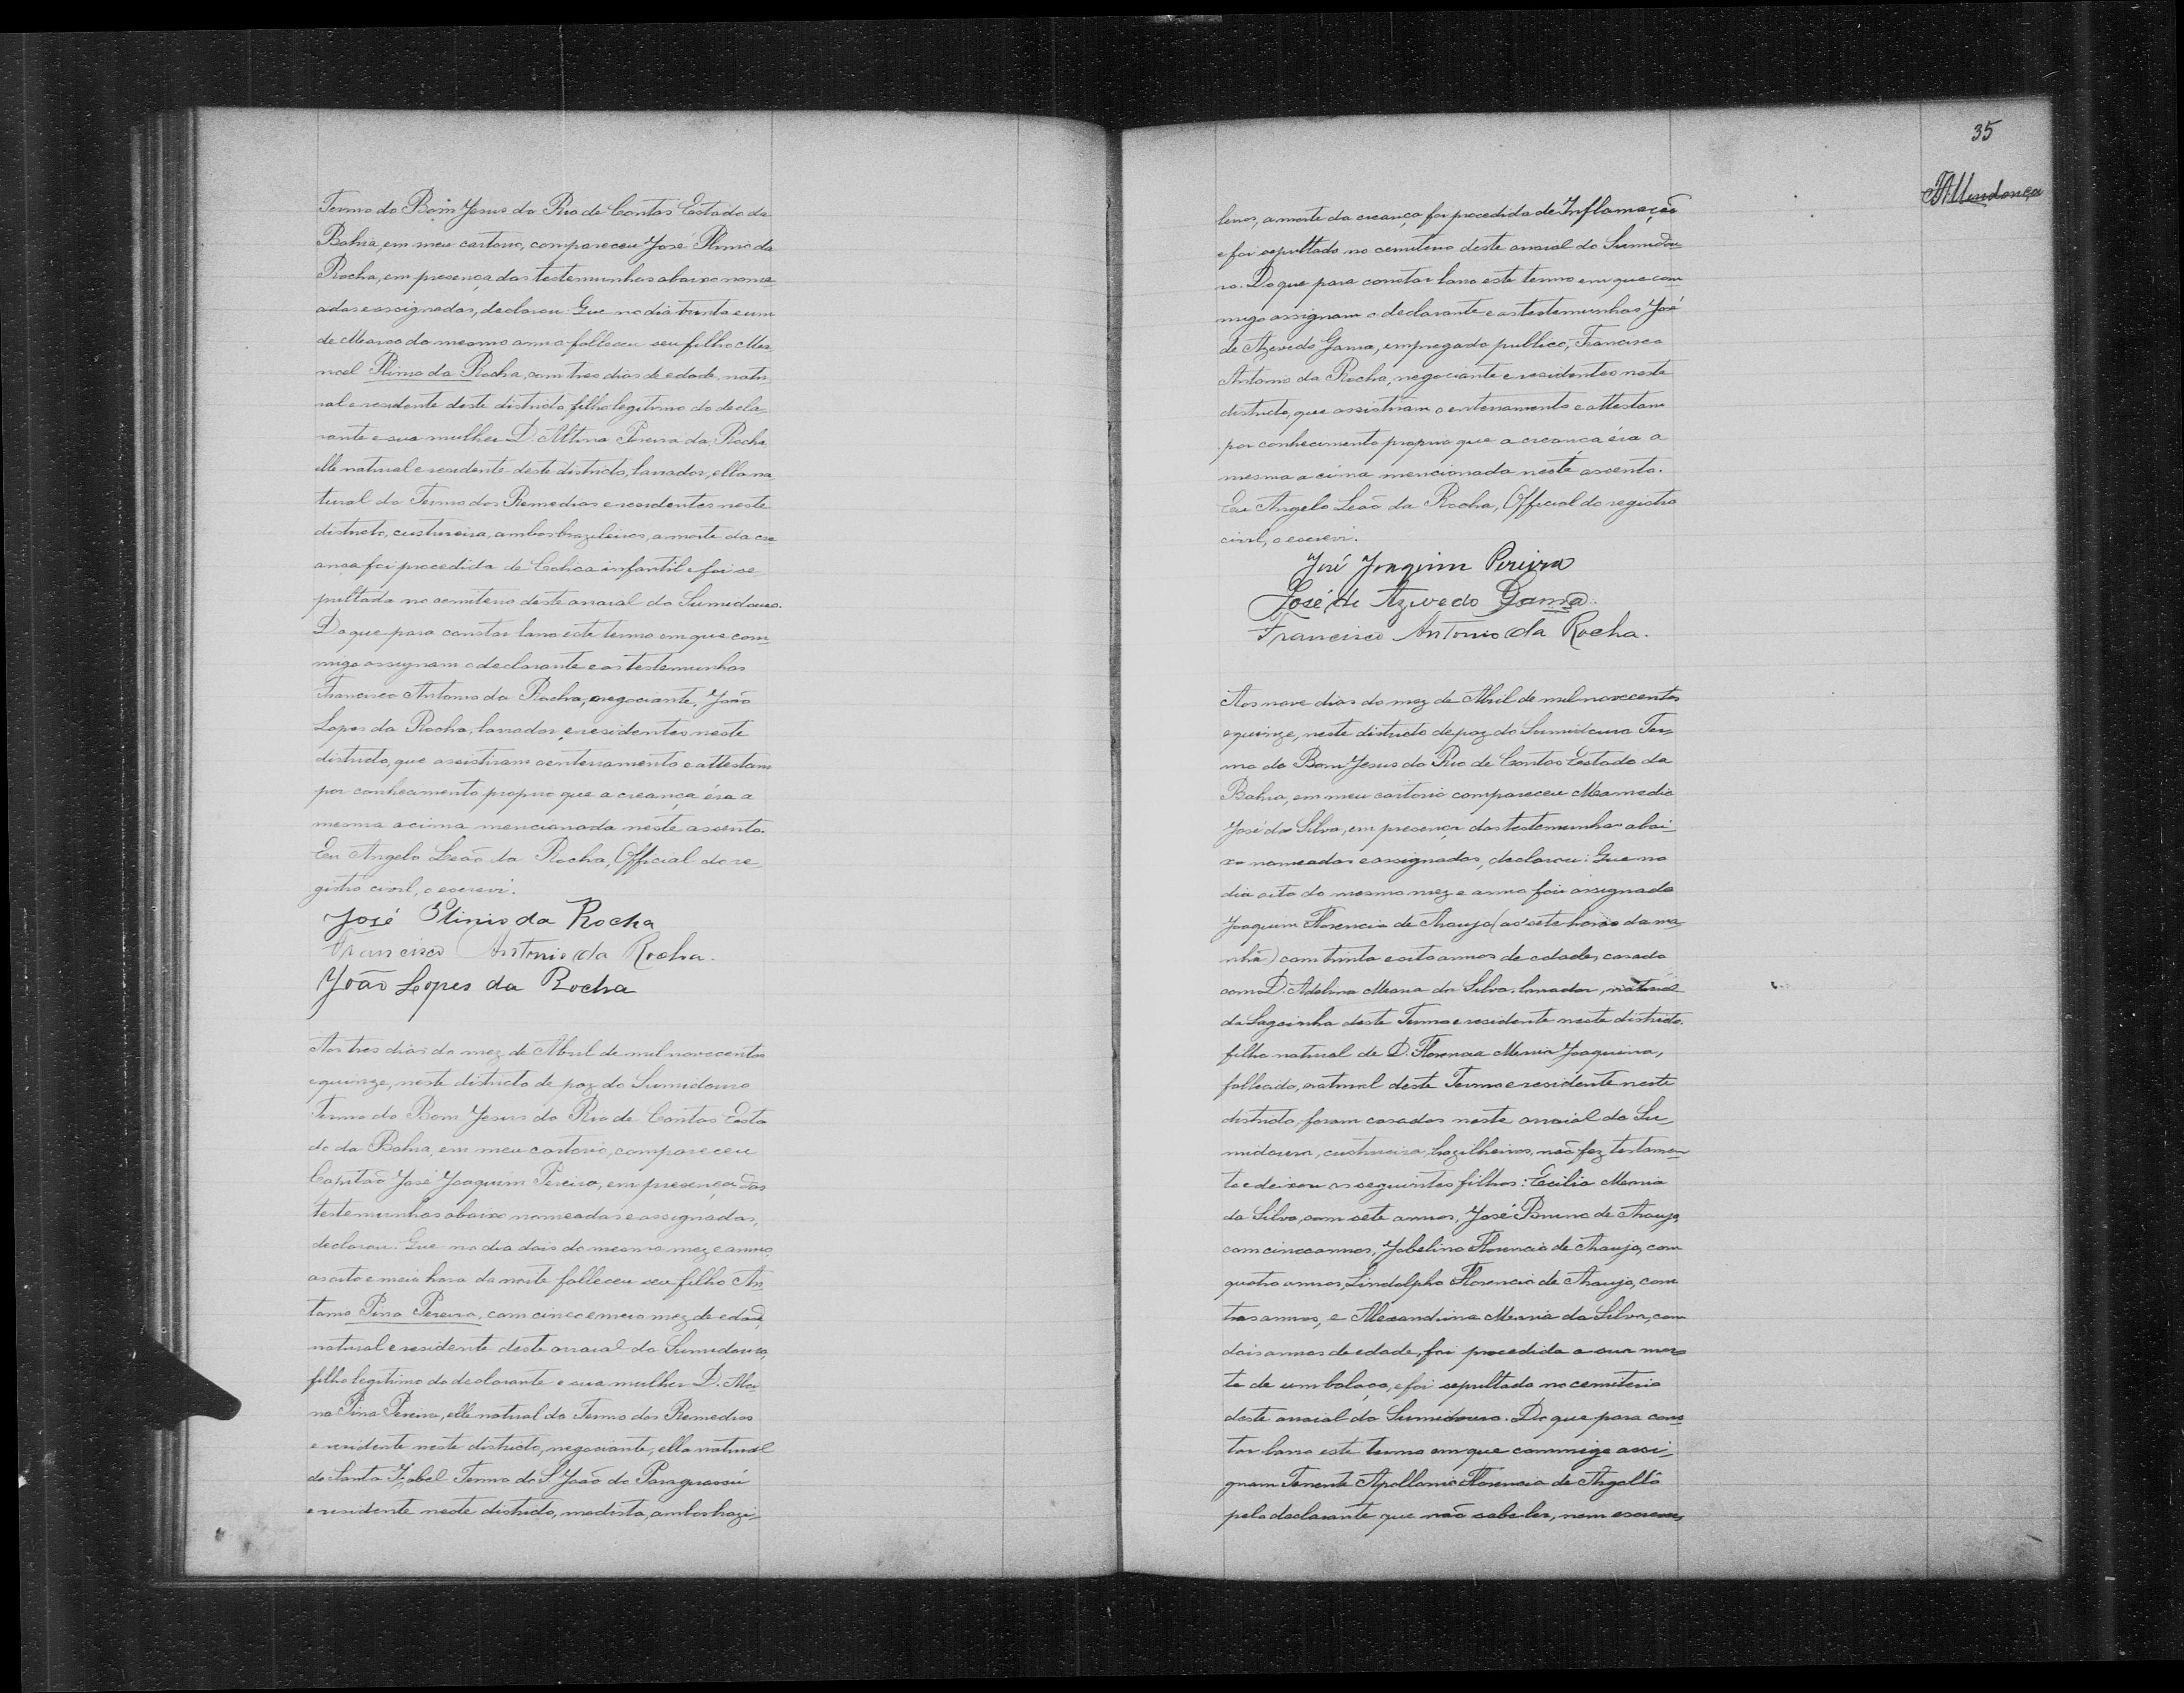 Termo do Bom Jesus do Rio de Contas Estado da
Bahia, em meu cartorio, compareceu José Plinio da
Rocha, em presença das testemunhas abaixo nome
adas e assignadas, declarou: Que no dia trinta e um
de Março do mesmo anno falleceu seu filho Ma
noel Plinio da Rocha, com tres dias de edade, natu
ral e residente deste districto, filho legitimo do decla
rante e sua mulher D. Altina Pereira da Rocha
elle natural e residente deste districto, lavrador, ella na
tural do Termo dos Remedios e residentes neste
districto, custureira, ambos brazileiros, a morte da cre
ança foi procedida de Colica infantil e foi se
pultada no cemiterio deste arraial do Sumidouro.
Do que para constar lavro este termo em que com
migo assignam o declarante e as testemunhas
Francisco Antonio da Rocha, negociante, João
Lopes da Rocha, lavrador, e residentes neste
districto, que assistiram o enterramento e attestam
por conhecimento proprio que a creança éra a
mesma acima mencionada neste assento.
Eu Angelo Leão da Rocha, Official do re
gistro civil, o escrevi.
José Plinio da Rocha
Francisco Antonio da Rocha.
João Lopes da Rocha
Aos tres dias do mez de Abril de mil novecentos
e quinze, neste districto de paz do Sumidouro
Termo do Bom Jesus do Rio de Contas Esta
do da Bahia, em meu cartorio, compareceu
Capitão José Joaquim Pereira, em presença das
testemunhas abaixo nomeadas e assignadas,
declarou: Que no dia dois do mesmo mez e anno,
as oito e meia hora da noite falleceu seu filho An
tonio Pina Pereira, com cinco e meio mez de edade,
natural e residente deste arraial do Sumidouro,
filho legitimo do declarante e sua mulher D.
na Pina Pereira, elle natural do Termo dos Remedios
e residente neste districto, negociante, ella natural
de Santa Izabel Termo de S. João do Paraguassú
e residente neste districto, modista, ambos brazi-
35
leiros, a morte da creança foi procedida de Inflamação
e foi sepultado no cemiterio deste arraial do Sumidou
ro. Do que para constar lavro este termo em que com
migo assignam o declarante e as testemunhas José
de Azevedo Gama, empregado publico, Francisco
Antonio da Rocha, negociante e residentes neste
districto, que assistiram o enterramento e attestam
por conhecimento proprio que a creança éra a
mesma acima mencionada neste assento.
Eu Angelo Leão da Rocha, Official do registro
civil, o escrevi.
José Joaquim Pereira
José de Azevedo Gama
Francisco Antonio da Rocha.
Aos nove dias do mez de Abril de mil novecentos
e quinze, neste districto de paz do Sumidouro Ter
mo do Bom Jesus do Rio de Contas Estado da
Bahia, em meu cartorio compareceu Mamedio
José da Silva, em presença das testemunhas abai
xo nomeadas e assignadas, declarou: Que no
dia oito do mesmo mez e anno foi assignado
Joaquim Florencio de Araujo (as sete horas da ma
nhã) com trinta e oito annos de edade, casado
com D. Adelina Maria da Silva, lavrador, natural
da Lagoinha deste Termo e residente neste districto.
filho natural de D. Florencia Maria Joaquina,
fallecido, natural deste Termo e residente neste
districto, foram casados neste arraial do Su
midouro, custureira, brazilheiros, não fez testamen
to e deixou os seguintes filhos: Ecilia Maria
da Silva, com sete annos, José de Araujo,
com cinco annos, Jobelino Florencio de Araujo, com
quatro annos, Lindolpho Florencio de Araujo, com
tres annos, e Alexandrina Maria da Silva, com
dois annos de edade, foi procedida a sua mor
te de um balaço, e foi sepultado no cemiterio
deste arraial do Sumidouro. Do que para cons
tar lavro este termo em que commigo assi-
gnam Tenente Apollonio Florencio de Argollô
pelo declarante que não sabe ler, nem escrever,